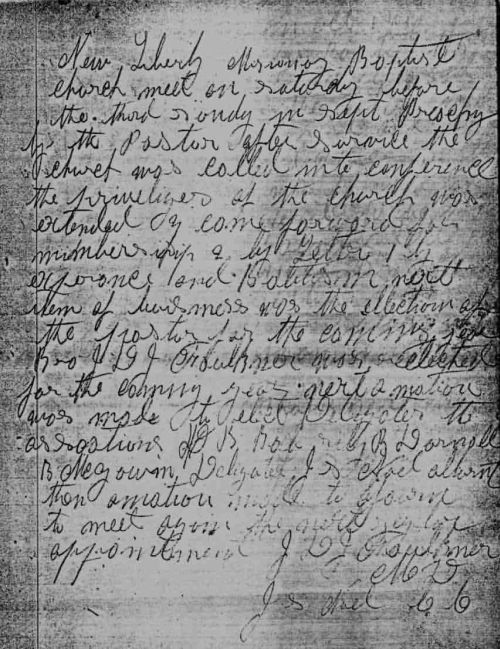 New Liberty Missionary Baptist
church meet on Saturday before
the third sondy in Sept Preachy
by the Pastor after Survice the
church was called into conference
the priveliges of the church was
extended 3 came forward for
membership 2 by Letter 1 by
experance and Batism next
item of buisness was the ellection of
the pastor for the coming year
Bro J D J Faulkner was ellected
for the coming year next a motion
was made to elect Delgates to
assosations B B Darnell
B Mcgowin, Delgates, J S
then a motion made to ajourn
to meet again the next regular
appointment J D J Faulkner
M D
J S C C